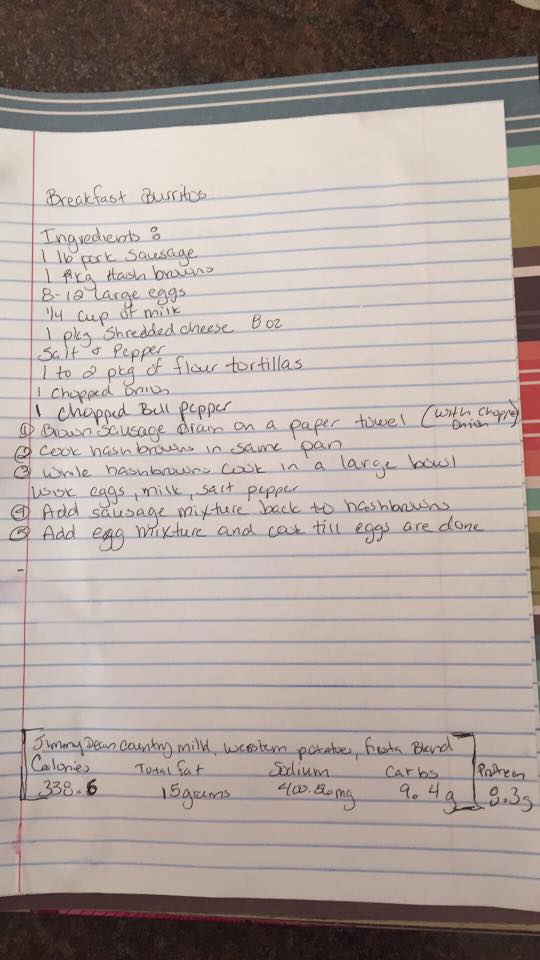 Breakfast Burritos
Ingredients:
1 lb pork Sausage
1 pkg Hash browns
8-12 large eggs
1/4 cup of milk
1 pkg Shredded cheese 8 oz
Salt & Pepper
1 to 2 pkg of flour tortillas
1 Chopped Onion
1 Chopped Bell pepper
① Brown Sausage drain on a paper towel (with Chopped Onion)
② Cook hashbrowns in same pan
③ While hashbrowns cook in a large bowl
wisk eggs, milk, salt pepper
④ Add sausage mixture back to hashbrowns
⑤ Add egg mixture and cook till eggs are done
Jimmy Dean country mild, western potatoes, fiesta Blend
Calories Total fat Sodium Carbs Protein
338.6 15 grams mg 9.4g 9.3g